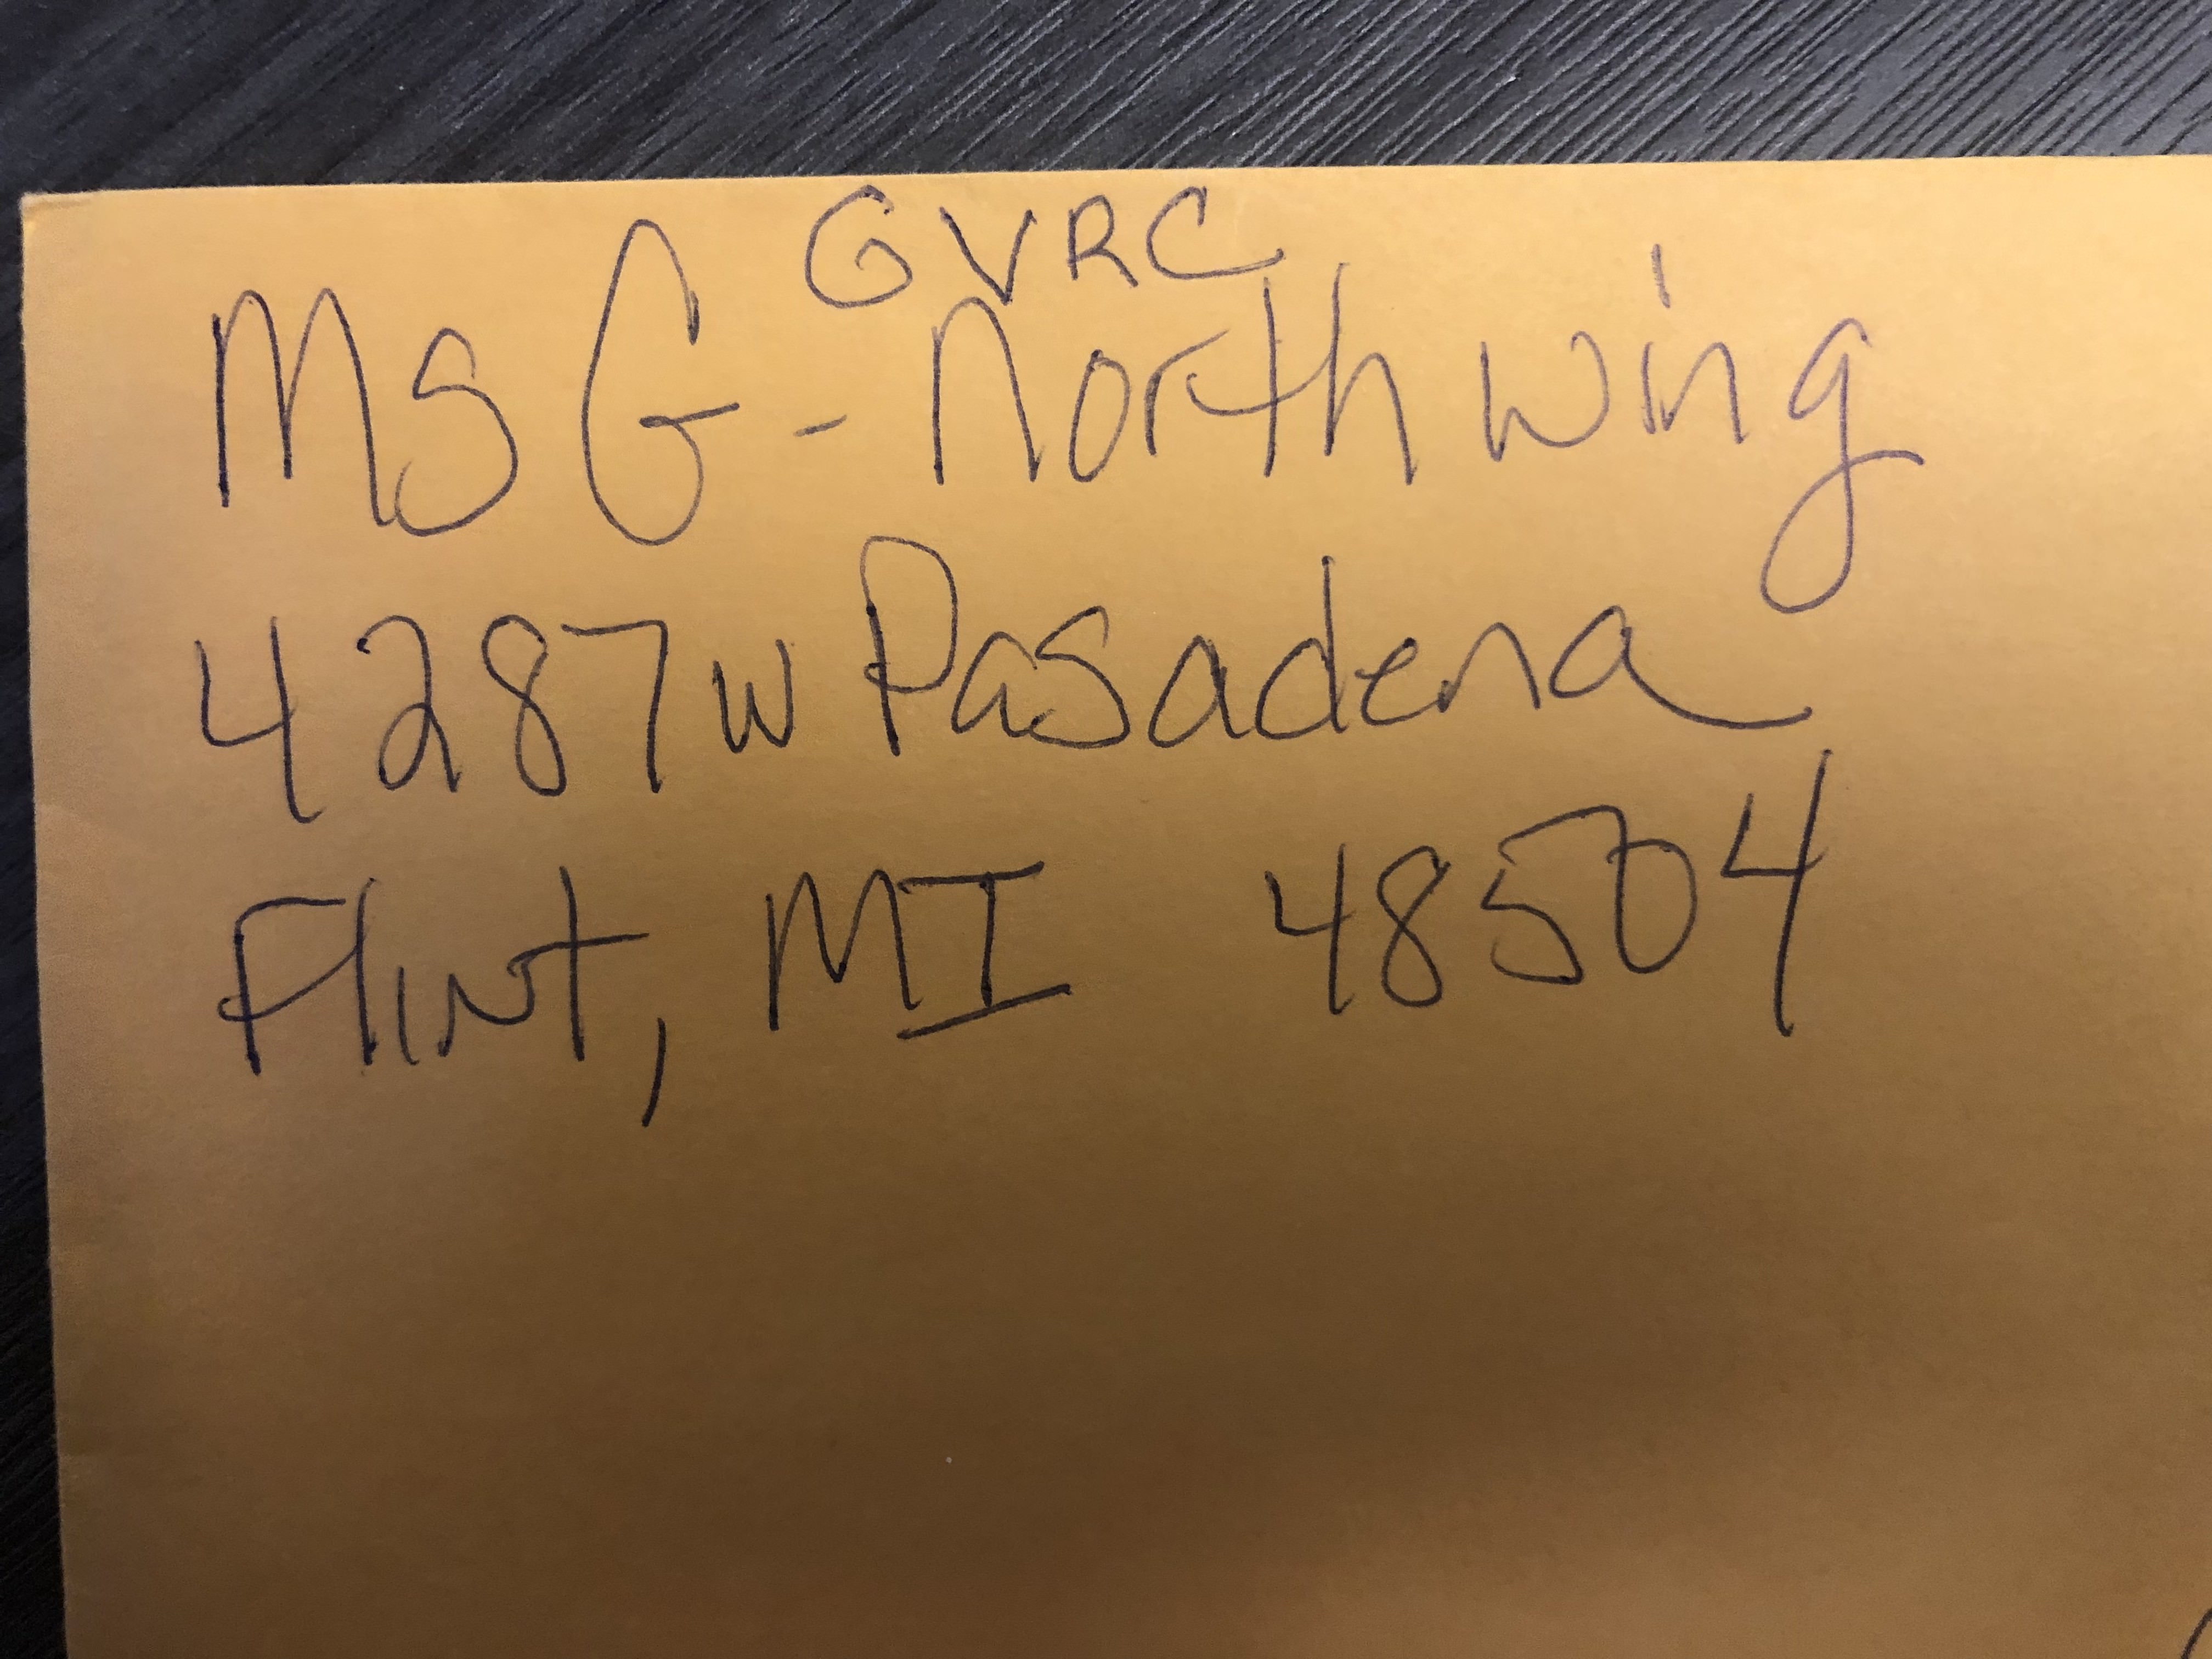 GVRC
Ms G - North wing
4287 W Pasadena
Flint, MI 48504